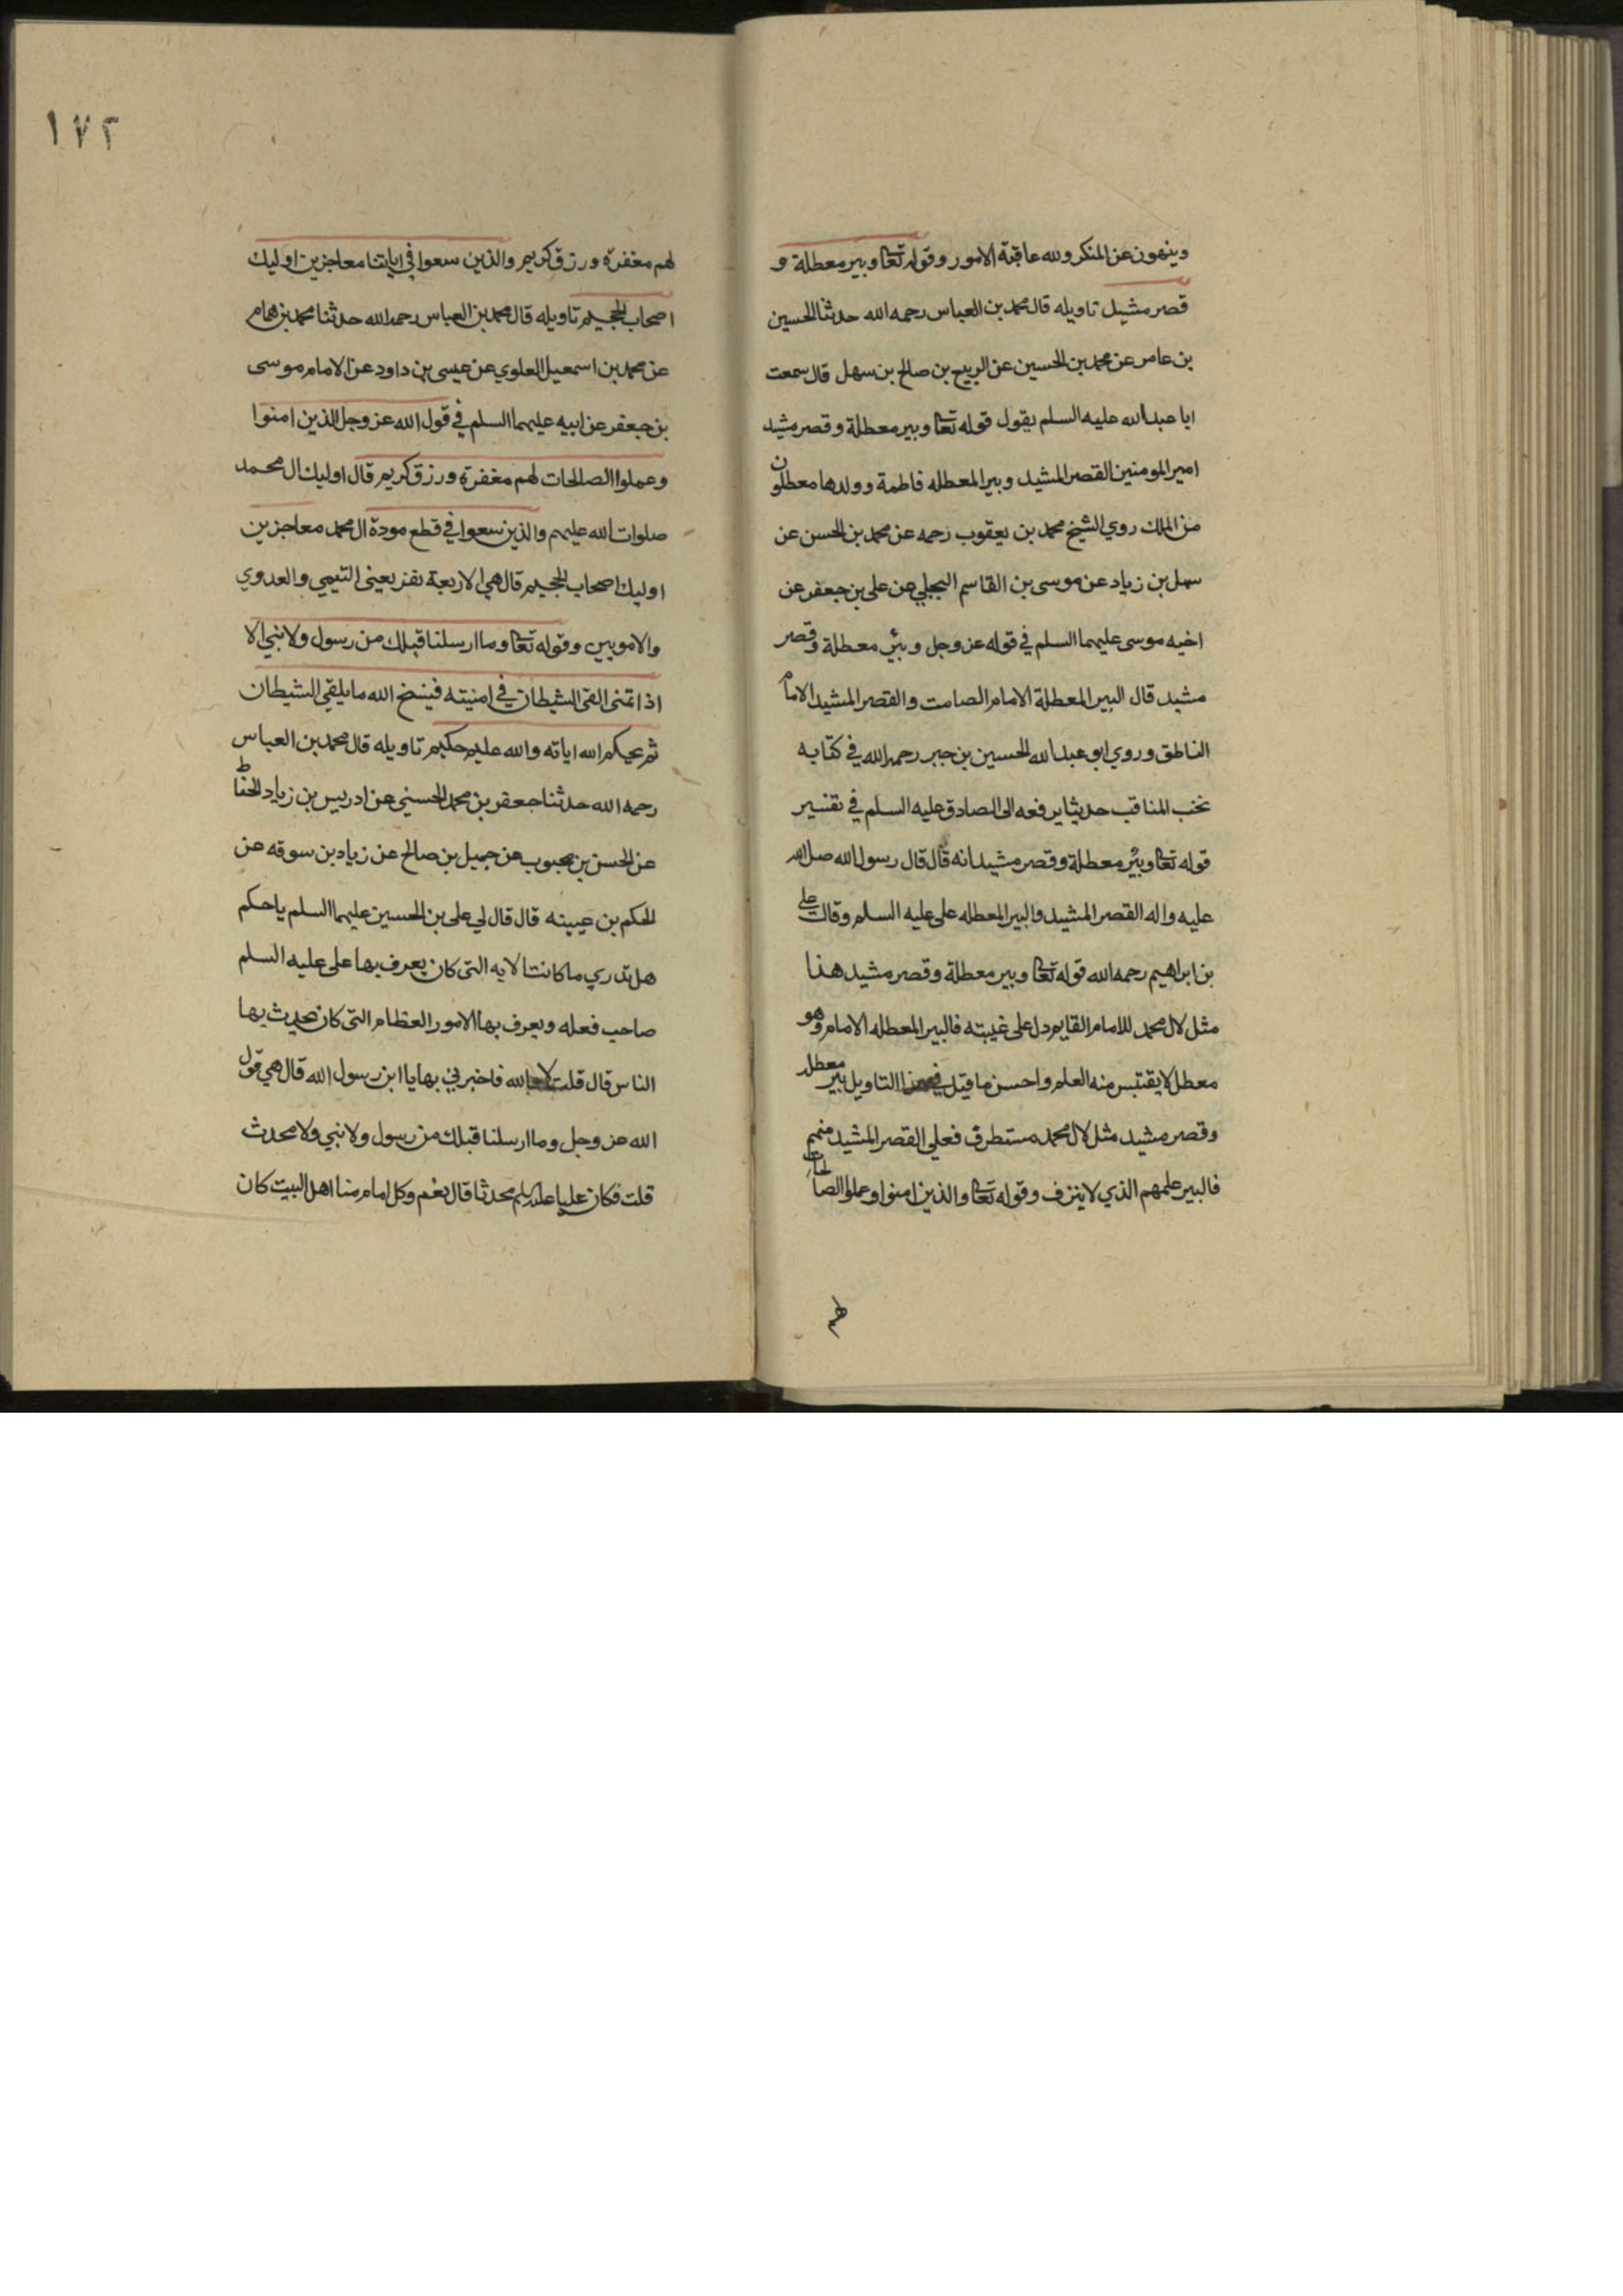 وينهون عن المنكر ولله عاقبة الامور وقوله تعا وبير معطلة و
قصر مشيد تاويله قال محمد بن العباس رحمه الله حدثنا الحسين
بن عامر عن محمد بن الحسين عن الربيع بن صالح بن سهل قال سمعت
ابا عبدالله عليه السلم يقول قوله تعا وبير معطلة وقصر مشيد
امير المومنين القصر المشيد وبير المعطله فاطمة وولدها معطلون
من الملك روي الشيخ محمد بن يعقوب رحمه عن محمد بن الحسن عن
سهل بن زياد عن موسى بن القاسم البجلي عن على بن جعفر عن
اخيه موسى عليهما السلم في قوله عز وجل وبئر معطلة وقصر
مشيد قال البير المعطلة الامام الصامت والقصر المشيد الامام
الناطق وروي ابو عبدالله الحسين بن جبر رحمه الله في كتابه
نخب المناقب حديثا يرفعه الى الصادق عليه السلم في تفسير
قوله تعا وبئر معطلة وقصر مشيد انه قال قال رسول الله صل الله
عليه واله القصر المشيد والبير المعطله على عليه السلم وقال على
بن ابراهيم رحمه الله قوله تعا وبير معطلة وقصر مشيد هذا
مثل لال محمد للامام القايم دل على غيبته فالبير المعطله الامام وهو
معطل لا يقتبس منه العلم واحسن ما قيل في هذا التاويل بير معطله
وقصر مشيد مثل لال محمد مستطرف فعلي القصر المشيد منهم
فالبير علمهم الذي لا ينزف وقوله تعا والذين امنوا وعملوا الصالحات
لهم
١٧٢
لهم مغفرة ورزق كريم والذين سعوا في اياتنا معاجزين اوليك
اصحاب الجحيم تاويله قال محمد بن العباس رحمه الله حدثنا محمد بن همام
عن محمد بن اسمعيل العلوي عن عيسى بن داود عن الامام موسى
بن جعفر عن ابيه عليهما السلم في قول الله عز وجل الذين امنوا
وعملوا الصالحات لهم مغفرة ورزق كريم قال اوليك ال محمد
صلوات الله عليهم والذين سعوا في قطع مودة ال محمد معاجزين
اوليك اصحاب الجحيم قال هي الاربعة نفر يعنى التيمي والعدوي
والامويين وقوله تعا وما ارسلنا قبلك من رسول ولا نبي الا
اذا تمنى القى الشيطان في امنيته فينسخ الله ما يلقي الشيطان
ثم يحكم الله اياته والله عليم حكيم تاويله قال محمد بن العباس
رحمه الله حدثنا جعفر بن محمد الحسني عن ادريس بن زياد الحناط
عن الحسن بن محبوب عن جميل بن صالح عن زياد بن سوقه عن
الحكم بن عيينه قال قال لي على بن الحسين عليهما السلم يا حكم
هل تدري ما كانت الايه التى كان يعرف بها على عليه السلم
صاحب فعله ويعرف بها الامور العظام التى كان يحدث بها
الناس قال قلت لا والله فاخبرني بها يا ابن رسول الله قال هي قول
الله عز وجل وما ارسلنا قبلك من رسول ولا نبي ولا محدث
قلت فكان عليا محدثا قال نعم وكل امام منا اهل البيت كان